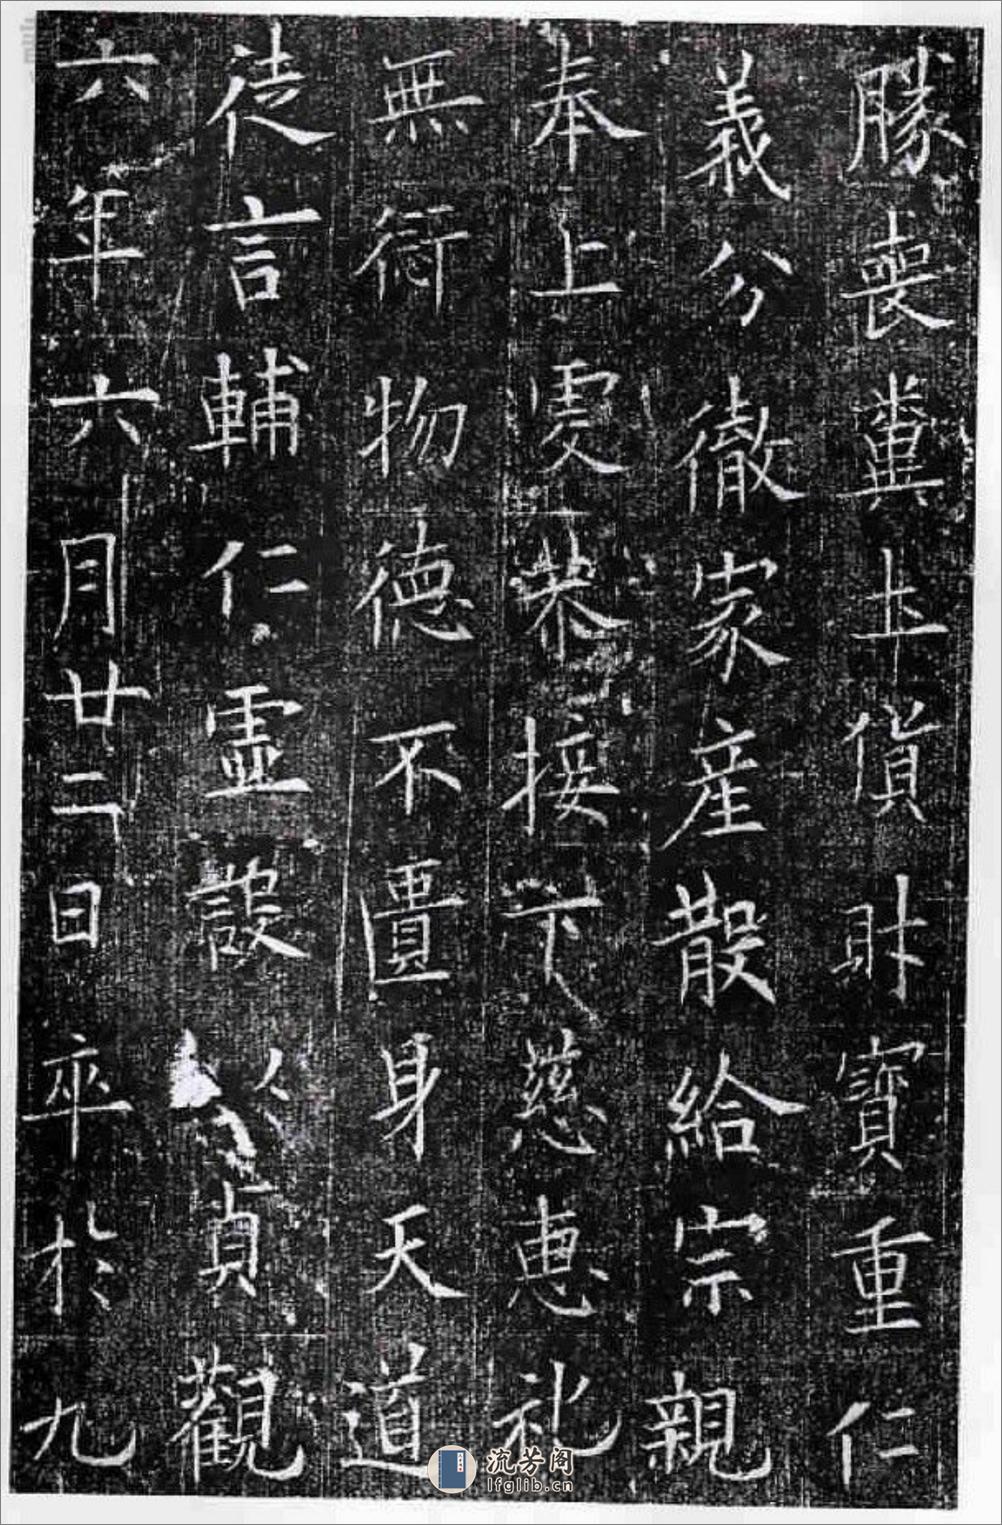 勝喪糞土貨財寶重仁
義分徹家産散給宗親
奉上處恭接下慈惠礼
無衍物德不匱身天道
徒言輔仁靈設貞觀
六年六月廿二日卒於九
流芳阁
lfglib.cn